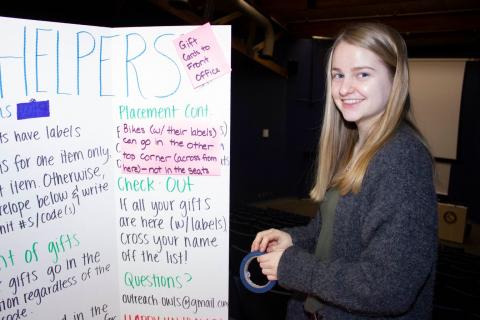 HELPERS
Gift
Cards to
Front
Office
ts have labels
s for one item only.
t item. Otherwise,
elope below & write
nit #s/code(s)
nt of gifts
gifts go in the
ion regardless of the
code.
d in the
Placement Cont.
Bikes (w/ their labels)
can go in the other
top corner (across from
here) - not in the seats
Check Out
If all your gifts
are here (w/labels)
cross your name
off the list!
Questions?
outreach.owls@gmail.com